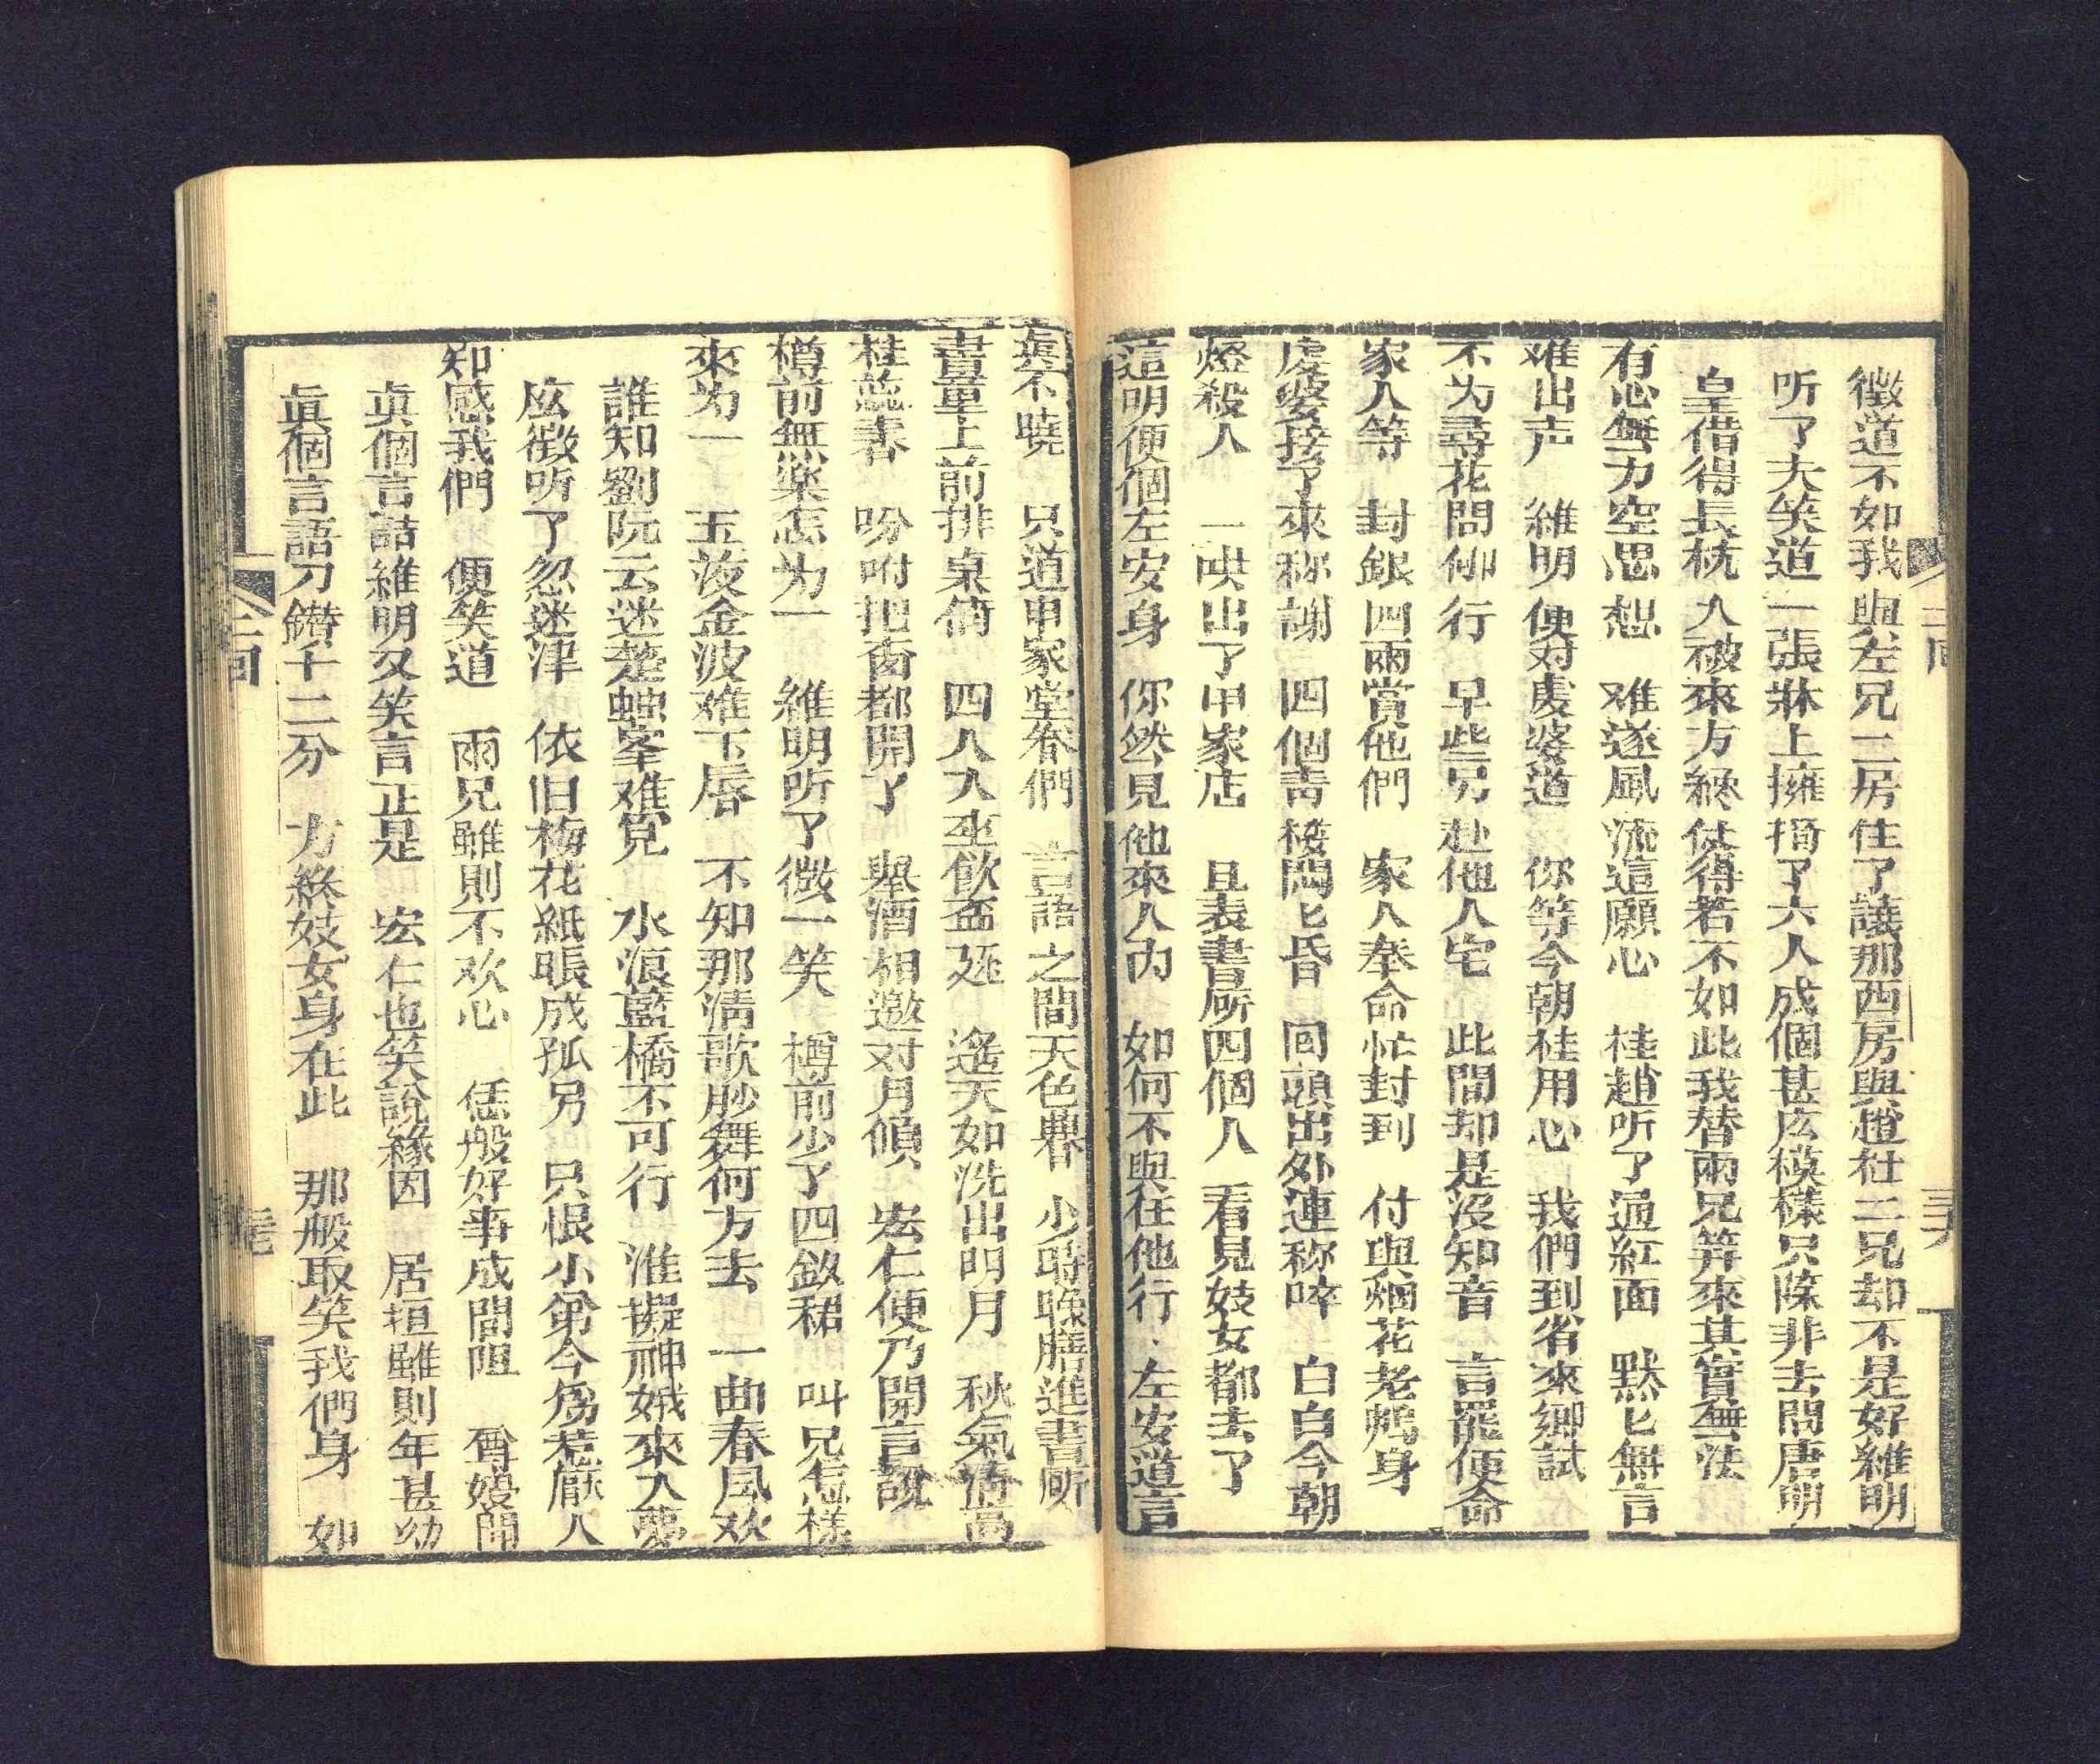 徵道不如我與左兄二房住了讓那西房與趙杜二兄却不是好維明
听了大笑道一張牀上擁擠了六人成個甚庅模樣只除非去問唐明
皇借得長枕大被來方終使得若不如此我替兩兄筭來其實無法
有心無力空思想 难遂風流這願心 桂趙听了通紅面 黙匕無言
难出声 維明便对虔婆道 你等今朝枉用心 我們到省來鄉試
不为尋花問柳行 早些另赴他人宅 此間却是沒知音 言罷便命
家人等 封銀四兩賞他們 家人奉命忙封到 付與烟花老鸨身
虔婆接了來称謝 四個青楼悶匕昏 回頭出外連称啐 白白今朝
燈殺人 一哄出了甲家店 且表書房四個人 看見妓女都去了
這明便個左安身 你然見他來人內 如何不與在他行 左安道言
眞不曉 只道申家堂眷們 言語之間天色暴 少時晚膳進書房
書童上前排桌倘 四人入坐飲盃廵 遙天如洗出明月 秋氣倍高
桂蕊香 吩咐把窗都開了 舉酒相邀对月傾 宏仁便乃開言說
樽前無樂怎为一 維明听了微一笑 樽前少了四釵裙 叫兄怎樣
來为一 玉液金波难下唇 不知那清歌妙舞何方去 一曲春风欢
誰知劉阮云迷楚蛐峯难覓 水浪藍橋不可行 淮擬神娥來入夢
庅徵听了忽迷津 依旧梅花紙帳成孤另 只恨小弟今为惹厭人
知感我們 便笑道 兩兄雖則不欢心 恁般好事成間阻 尊嫂聞
眞個言詰維明又笑言正是 宏仁也笑說緣因 居垣雖則年甚幼
眞個言語刀鑽千二分 方終妓女身在此 那般取笑我們身 如
二回
二回